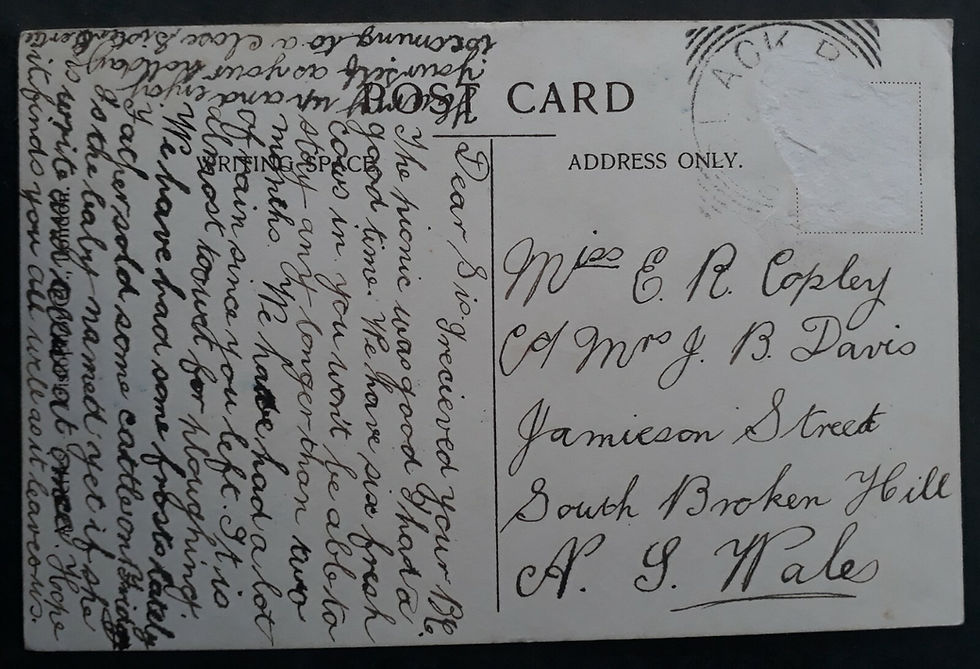 POST CARD
WRITING SPACE
ADDRESS ONLY.
LACK R
Dear Sis, I recieved your
The picnic was good I had a
good time. We have six fresh
cows in. you won't be able to
stay any longer than two
months. We have had a lot
of rain since you left. It is
almost to wet for ploughing.
We have had some frosts lately
Father sold some cattle on Friday
Is the baby named yet if she
is write at once. Hope
it finds you all well as it leaves us.
Hurry up and enjoy
yourself as your holiday
is coming to a close Sister
Miss E. R. Copley
C/o Mrs J. B. Davis
Jamieson Street
South Broken Hill
N. S. Wales